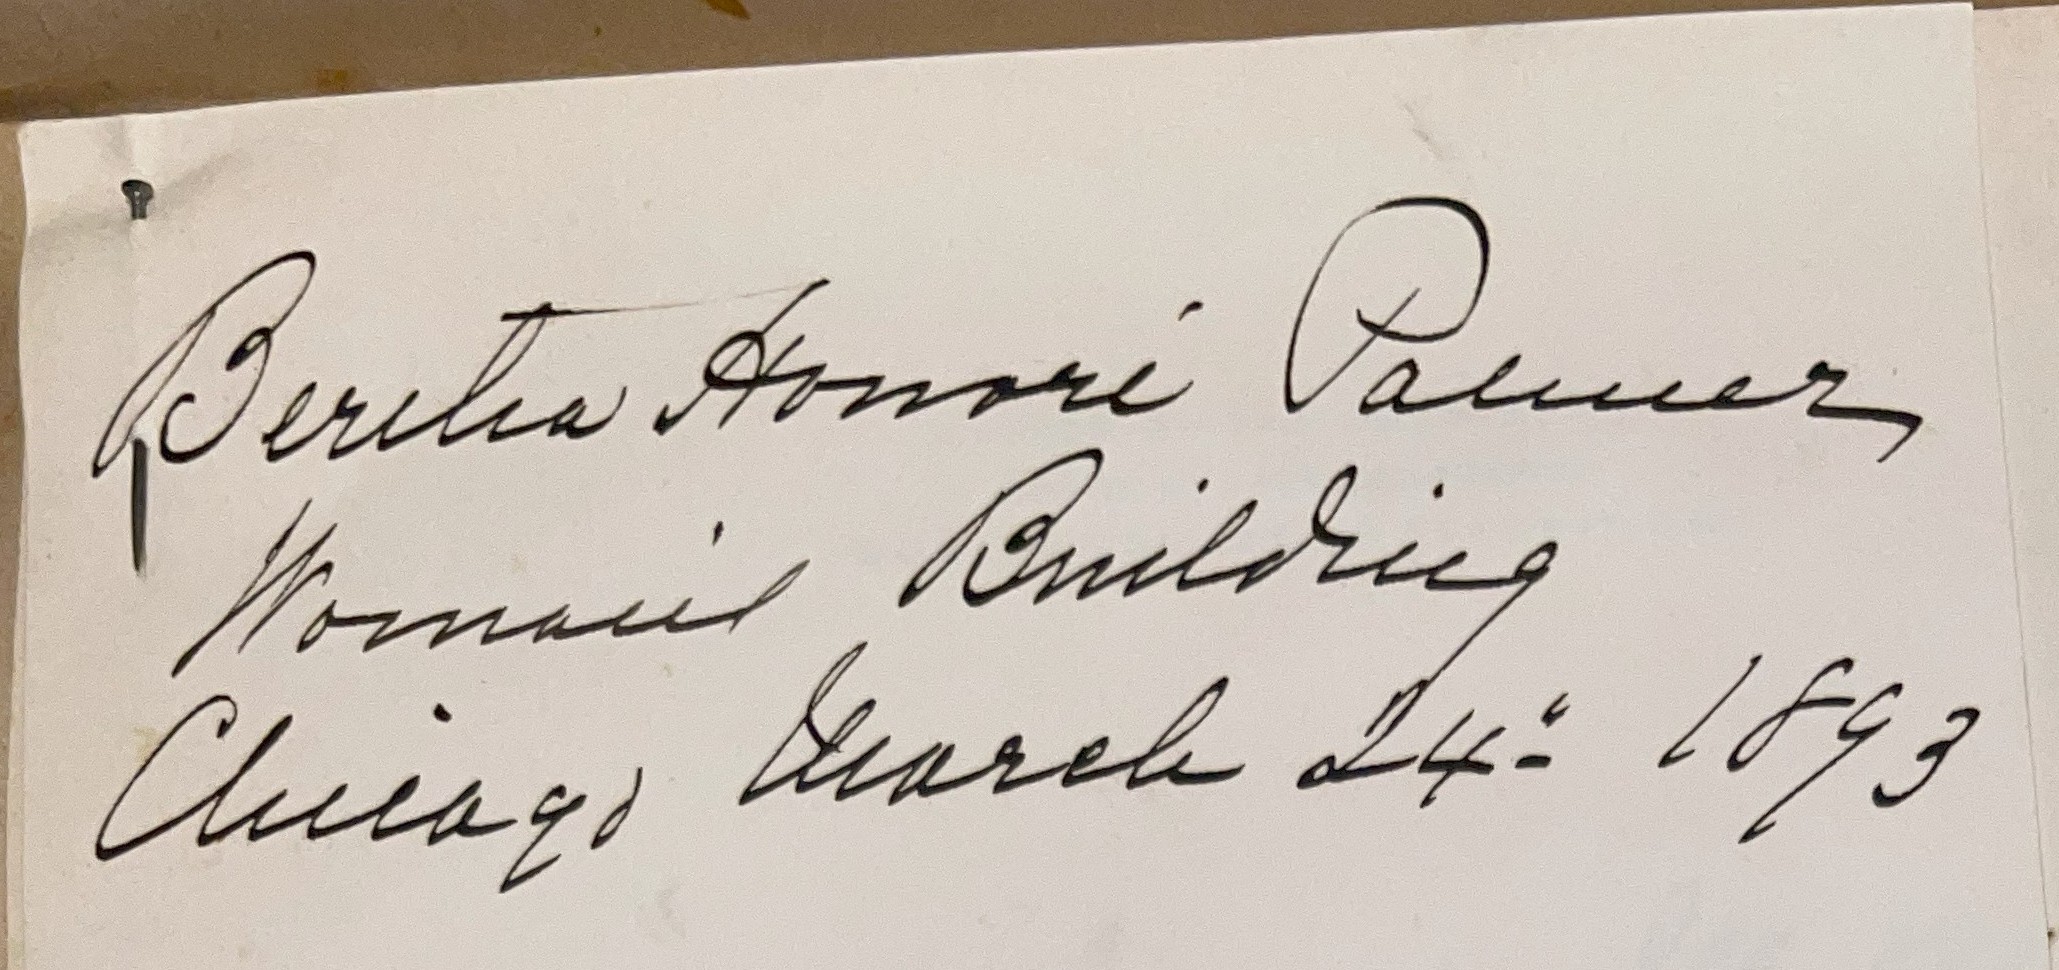 Bertha Honoré Palmer
Woman's Building
Chicago March 24" 1893